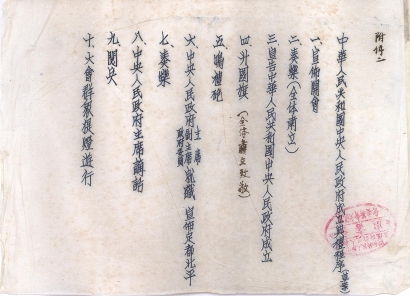 附件二
中華人民共和國中央人民政府成立典禮程序(草案)
一、宣佈開會
二、奏樂(全体肅立)
三、宣告中華人民共和國中央人民政府成立
四、升國旗(全体肅立致敬)
五、鳴禮砲
六、中央人民政府主席副主席政府委員就職 宣佈定都北平
七、奏樂
八、中央人民政府主席講話
九、閱兵
十、大會群衆提燈遊行